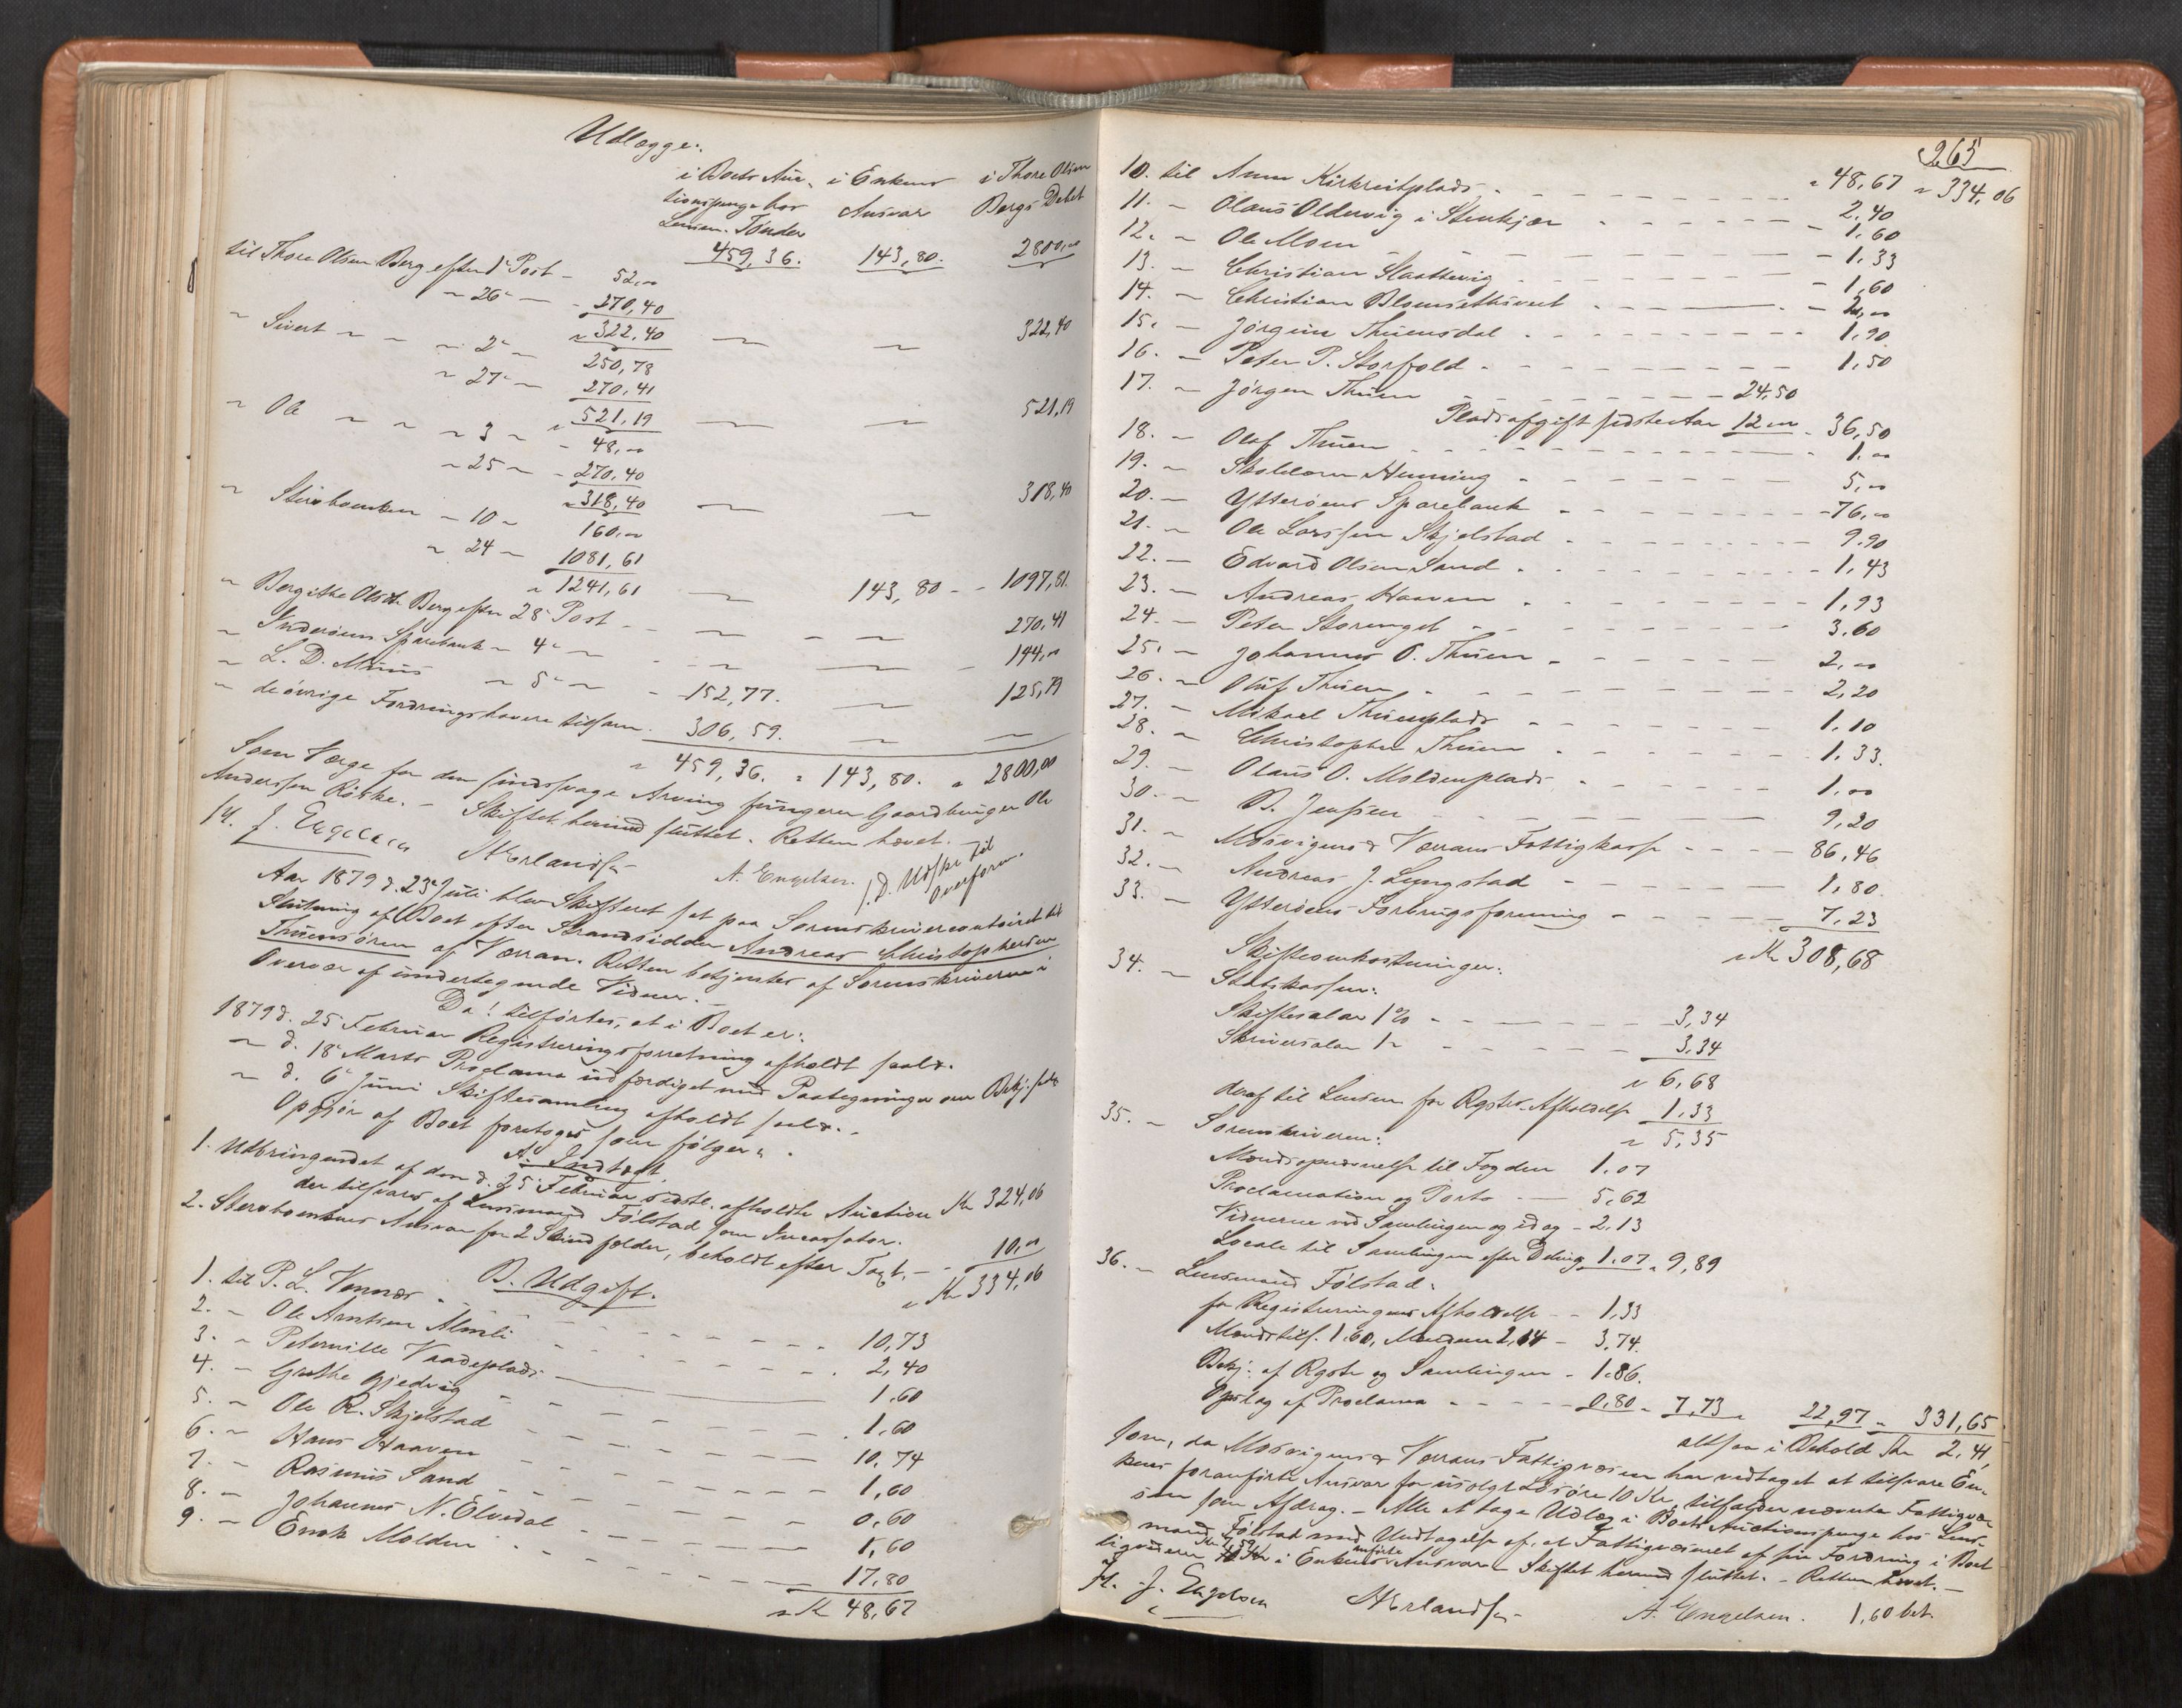 Udlægges
i Boets Auc- i Enkens i Thore Olsen
tionspenge hos Ansvar Bergs Debet
Lensm. Tønder
459,36. 143,80. 2800,00
til Thore Olsen Berg efter 1e Post - 52,00
" 26e - 270,40
" 322,40 322,40
" Sivert " 2e - 250,78
" 27e - 270,41
" 521,19 521,19
" Ole " 3 " - 48,00
" 25 " - 270,40
" 318,40 318,40
" Stervboenken - 10 " 160,00
" 24 - 1081,61
" 1241,61 143,80 - - 1097,81.
" Bergithe Olsdr Berg efter 28e Post - 270,41
" Inderøens Sparebank " 4e " 144,00
" L. D. " 5e " - 152,77. 125,79
" de øvrige Fordringshavere tilsam. 306,59.
" 459,36. " 143,80. " 2800,00
Som Værge for den sindssvage Arving fungerer Gaardbruger Ole
Anderssen Röske. - Skiftet hermed sluttet. Retten hævet. -
H. J. Engelsen Erlandsen A. Engelsen. J. d. Udskr til
Overform.
Aar 1879 d. 23e Juli blev Skifteret sat paa Sorenskrivercontoiret til
Slutning af Boet efter Strandsidder Andreas Christophersen
Thuensøren af Værran. Retten betjentes af Sorenskriveren i
Overvær af undertegnede Vidner. -
Da! tilførtes, at i Boet er:
1879 d. 25 Februar Registreringsforretning afholdt saal.
" d. 18e Marts Proclama udfærdiget med Paategninger om Bekj.
" d. 6e Juni Skiftesamling afholdt saal. -
Opgjør af Boet foretoges som følger: .
A. Indtægt.
1. Udbringendet af den d. 25e Februar sidstl. afholdte Auction Kr 324,06
der tilsvares af Lensmand Følstad som Incassator.
2. Stervboenkens Ansvar for 2 Skindfelder, beholdt efter Taxt. - - 10,00
" Kr 334,06
B. Udgift.
1. til P. L. Vennes - 10,73
2. - Ole Arntsen Almli - 2,40
3. " Peternille Vaadeplads 1,60
4. - Grethe Gjedvig - 1,60
5. " Ole R. Skjelstad 10,74
6. - Hans Haaven 1,60
7. - Rasmus Sand 0,60
8. - Johannes N. Elvedal 1,60
9. - Enok Molden 17,80
" Kr 48,67
265
10. til Anne Kirkreitplads - " 48,67 " 334,06
2,40
11. - Olaus Oldervig i Stenkjær - 1,60
12. " Ole Moen - 1,33
13. - Christian Slaattevig - 1,60
14. - Christian Blomsethsveet - 2,00
15. - Jørgine Thuensdal - 1,90
16. - Peter P. Storfold - 1,50
17. " Jørgen Thuen - 24,50
Pladsafgift sidste Aar 12,00 - 36,50
18. - Oluf Thuen - 1,00
19. - Skolelærer Henning - 5,00
20. - Ytterøens Sparebank - 76,00
21. - Ole Larssen Skjelstad - 9.90
22. - Edvard Olsen Sand - 1,43
23. - Andreas Haaven - 1,93
24. - Peter Storenget - 3.60
25. - Johannes O. Thuen - 2,00
26. - Oluf Thuen - 2,20
27. - Mikael Thuenplads - 1.10
28. " Christopher Thuen - 1,33.
29. - Olaus O. Moldenplads - 1,00
30. - B. Jenssen 9,20
31. - Mosvigens & Værrans Fattigkasse - 86,46
32. - Andreas J. Lyngstad - 1,80.
33. - Ytterøens Forbrugsforening - 7,23
" Kr 308,68
Skifteomkostninger:
34. - Statskassen:
Skiftesalær 1% - 3,34
Skriversalær 1 " - 3,34
" 6,68
deraf til Lensm. for Rgstr. Afholdelse 1,33
" 5,35
35. - Sorenskriveren:
Mændsopnævnelse til Fogden 1,07
Proclamation og Porto - 5,62
Vidnerne ved Samlingen og idag - 2,13
Locale til Samlingen efter Deling 1,07 " 9,89
36. - Lensmand Følstad:
for Registreringens Afholdelse - - 1,33
Mændstils. 1.60, Mændene 2,14 - 3,74.
Bekj: af Rgstr og Samlingen - 1.86.
Opslag af Proclama - 0,80 - 7,73 " 22,97 " 331,65
altsaa i Behold Kr 2,41,
som, da Mosvigens & Værrans Fattigvæsen har vedtaget at tilsvare En-
kens foranførte Ansvar for usolgt Løsøre 10 Kr, tilfalder nævnte Fattigvæ-
sen som Afdrag. - Alle at tage Udlæg i Boets Auctionspenge hos Lens-
mand Følstad med Undtagelse af, at Fattigvæsenet af sin Fordring i Boet
ligviderer i Enkens anførte Ansvar. Skiftet hermed sluttet. - Retten hævet. -
H. J. Engelsen Erlandsen A. Engelsen. 1,60 bet.